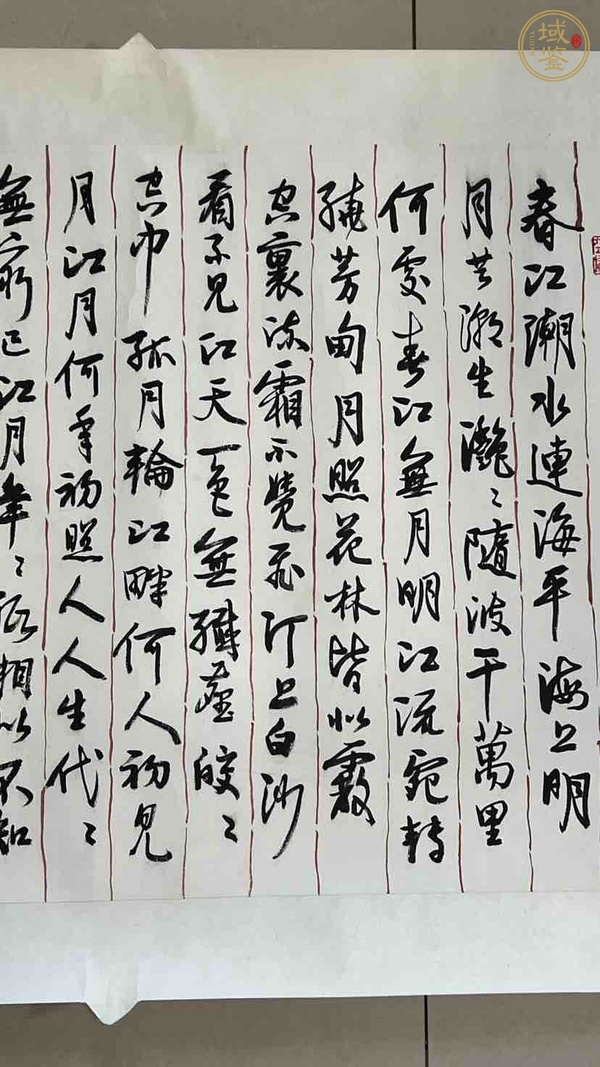 春江潮水連海平海上明
月共潮生灩〻隨波千萬里
何處春江無月明江流宛轉
繞芳甸月照花林皆似霰
空裏流霜不覺飛汀上白沙
看不見江天一色無纖塵皎〻
空中孤月輪江畔何人初見
月江月何年初照人人生代〻
無窮已江月年〻祇相似不知
域鉴